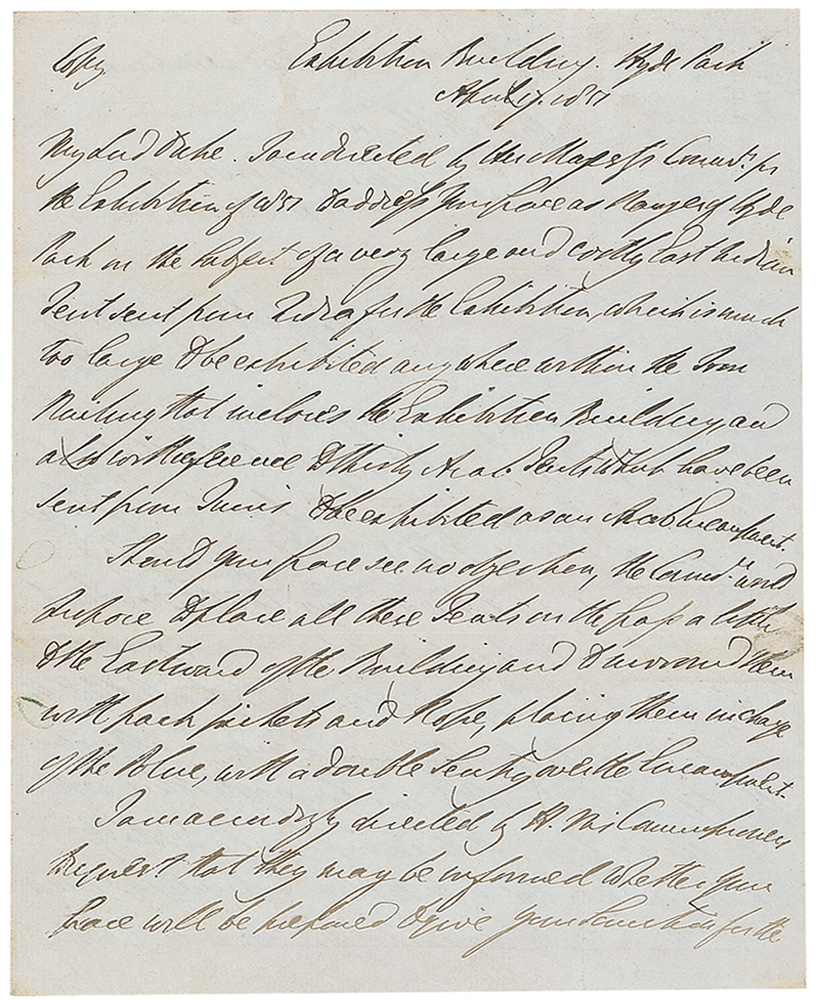 Copy
Exhibition Building. Hyde Park
April 1851
My Lord Duke. I am directed by Her Majesty's for
the Exhibition of 1851 to address Your Grace as Ranger of Hyde
Park on the subject of a very large and costly East Indian
Tent sent from India for the Exhibition, which is much
too large to be exhibited anywhere within the Iron
Railing that incloses the Exhibition Building, and
also with reference to thirty Arab Tents which have been
sent from Tunis to be exhibited as an Arab Encampment.
Should your Grace see no objection, the would
propose to place all these Tents on the Grass a little
to the Eastward of the Building and to surround them
with park pickets and Rope, placing them in charge
of the Police, with a double Sentry over the Encampment.
I am accordingly directed by H. M's Commissioners
to request that they may be informed whether Your
Grace will be prepared to give your Sanction for the